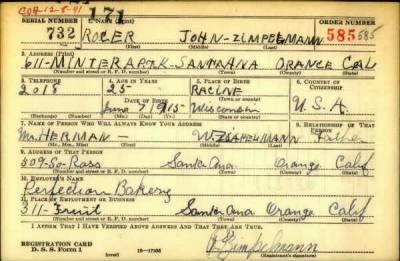 COA-12-8-41
171
SERIAL NUMBER 1. NAME (Print) ORDER NUMBER
732 ROGER JOHN-ZIMPELMANN 585 585
(First) (Middle) (Last)
2. ADDRESS (Print)
611-MINTER APTK-SANTA ANA ORANGE CAL
(Number and street or R. F. D. number) (Town) (County) (State)
3. TELEPHONE 4. AGE IN YEARS 5. PLACE OF BIRTH 6. COUNTRY OF CITIZENSHIP
2018 25 RACINE
DATE OF BIRTH (Town or county)
June 7 1915 Wisconsin U.S.A.
(Exchange) (Number) (Mo.) (Day) (Yr.) (State or country)
7. NAME OF PERSON WHO WILL ALWAYS KNOW YOUR ADDRESS 8. RELATIONSHIP OF THAT PERSON
Mr. HERMAN - W. ZIMPELMANN Father
(Mr., Mrs., Miss) (First) (Middle) (Last)
9. ADDRESS OF THAT PERSON
509-So-Ross Santa Ana Orange Calif
(Number and street or R. F. D. number) (Town) (County) (State)
10. EMPLOYER'S NAME
Perfection Bakery
11. PLACE OF EMPLOYMENT OR BUSINESS
311-Fruit Santa Ana Orange Calif
(Number and street or R. F. D. number) (Town) (County) (State)
I AFFIRM THAT I HAVE VERIFIED ABOVE ANSWERS AND THAT THEY ARE TRUE.
REGISTRATION CARD
D. S. S. Form 1 (over) 16-17105 Zimpelmann
(Registrant's signature)